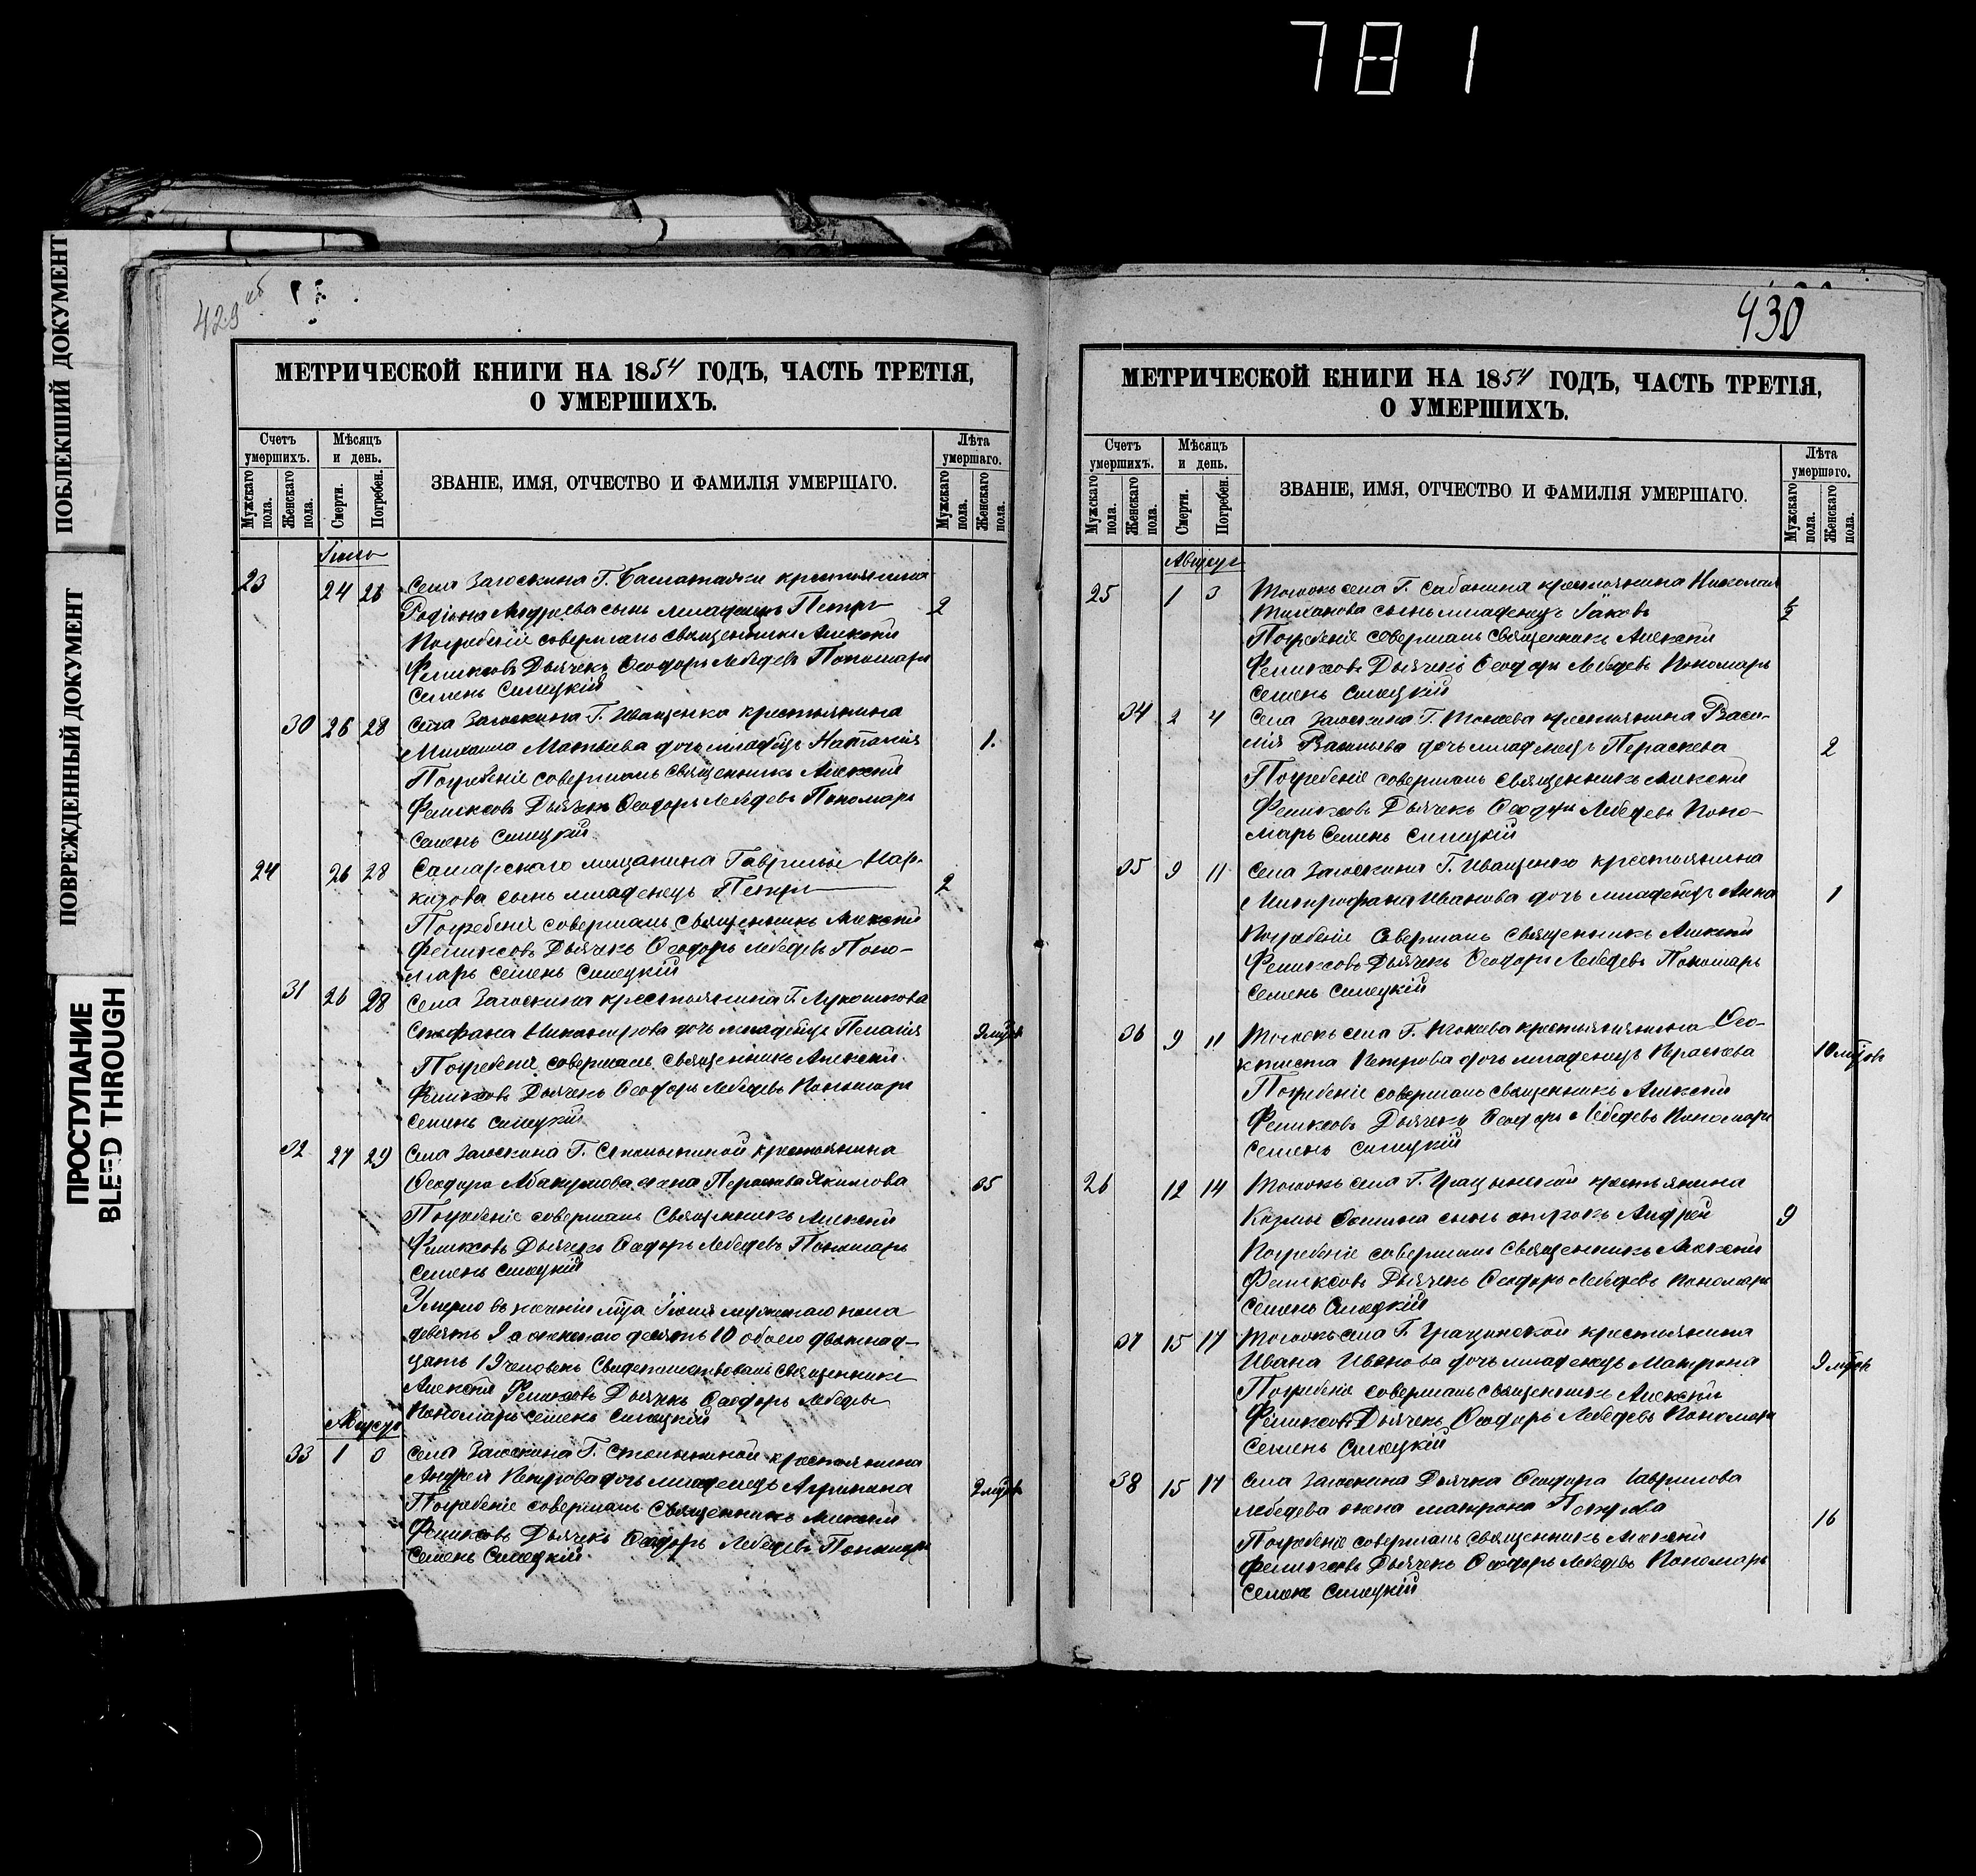 781
ПОБЛЕКШИЙ ДОКУМЕНТ
ПОВРЕЖДЕННЫЙ ДОКУМЕНТ
ПРОСТУПАНИЕ
BLEED THROUGH
429 об
МЕТРИЧЕСКОЙ КНИГИ НА 1854 ГОДЪ, ЧАСТЬ ТРЕТІЯ,
О УМЕРШИХЪ.
Счетъ умершихъ.
Мѣсяцъ и день.
ЗВАНІЕ, ИМЯ, ОТЧЕСТВО И ФАМИЛІЯ УМЕРШАГО.
Лѣта умершаго.
Мужскаго пола.
Женскаго пола.
Смерти.
Погребен.
Мужскаго пола.
Женскаго пола.
Іюль
23 24 26 Села Загоскина Г. Башмакова крестьянина
Родіона Андреева сынъ младенецъ Петръ 2
Погребеніе совершалъ Священникъ Алексѣй
Феликсовъ Дьячекъ Ѳеодоръ Лебедевъ Пономарь
Семенъ Силецкій
30 26 28 Села Загоскина Г. Иващенко крестьянина
Михаила Матвѣева дочь младнцъ Наталія 1.
Погребеніе совершалъ Священникъ Алексѣй
Феликсовъ Дьячекъ Ѳеодоръ Лебедевъ Пономарь
Семенъ Силецкій
24 26 28 Самарскаго мѣщанина Гаврилы
сынъ младенецъ Петръ 2
Погребеніе совершалъ Священникъ Алексѣй
Феликсовъ Дьячекъ Ѳеодоръ Лебедевъ Поно-
марь Семенъ Силецкій
31 26 28 Села Загоскина крестьянина Г. Лукошкова
Стефана Никанорова дочь младенецъ Пелагія 9 мцовъ
Погребеніе совершалъ Священникъ Алексѣй
Феликсовъ Дьячекъ Ѳеодоръ Лебедевъ Пономарь
Семенъ Силецкій
32 27 29 Села Загоскина Г. Столыпиной крестьянина
Ѳеодора Абакумова жена Параскева Якимова 35
Погребеніе совершалъ Священникъ Алексѣй
Феликсовъ Дьячекъ Ѳеодоръ Лебедевъ Пономарь
Семенъ Силецкій
Умерло въ теченіи мца Іюля мужескаго пола
девять 9 а женскаго десять 10 обоего девятнад-
цать 19 человекъ Свидетельствовалъ Священникъ
Алексѣй Феликсовъ Дьячекъ Ѳеодоръ Лебедевъ
Пономарь Семенъ Силецкій
Августъ
33 1 3 Села Загоскина Г. Столыпиной крестьянина
Андрея Петрова дочь младенецъ Агрипина 9 мцовъ
Погребеніе совершалъ Священникъ Алексѣй
Феликсовъ Дьячекъ Ѳеодоръ Лебедевъ Пономарь
Семенъ Силецкій
430
МЕТРИЧЕСКОЙ КНИГИ НА 1854 ГОДЪ, ЧАСТЬ ТРЕТІЯ,
О УМЕРШИХЪ.
Счетъ умершихъ.
Мѣсяцъ и день.
ЗВАНІЕ, ИМЯ, ОТЧЕСТВО И ФАМИЛІЯ УМЕРШАГО.
Лѣта умершаго.
Мужскаго пола.
Женскаго пола.
Смерти.
Погребен.
Мужскаго пола.
Женскаго пола.
Августъ
25 1 3 Тогожъ села Г. Сабанина крестьянина Николая
сынъ младенецъ Іаковъ ½
Погребеніе совершалъ Священникъ Алексѣй
Феликсовъ Дьячекъ Ѳеодоръ Лебедевъ Пономарь
Семенъ Силецкій
34 2 4 Села Загоскина Г. Мосеева крестьянина Васи-
лія Васильева дочь младенецъ Параскева 2
Погребеніе совершалъ Священникъ Алексѣй
Феликсовъ Дьячекъ Ѳеодоръ Лебедевъ Поно-
марь Семенъ Силецкій
35 9 11 Села Загоскина Г. Иващенко крестьянина
Митрофана Иванова дочь младенецъ Анна 1
Погребеніе совершалъ Священникъ Алексѣй
Феликсовъ Дьячекъ Ѳеодоръ Лебедевъ Пономарь
Семенъ Силецкій
36 9 11 Тогожъ села Г. Мосеева крестьянина Ѳео-
ктиста Петрова дочь младенецъ Параскева 10 мцовъ
Погребеніе совершалъ Священникъ Алексѣй
Феликсовъ Дьячекъ Ѳеодоръ Лебедевъ Пономарь
Семенъ Силецкій
26 12 14 Тогожъ села Г. Грацынской крестьянина
Козмы сынъ отрокъ Андрей 9
Погребеніе совершалъ Священникъ Алексѣй
Феликсовъ Дьячекъ Ѳеодоръ Лебедевъ Пономарь
Семенъ Силецкій
37 15 17 Тогожъ села Г. Грацинской крестьянина
Ивана Иванова дочь младенецъ Матрона 9 мцовъ
Погребеніе совершалъ Священникъ Алексѣй
Феликсовъ Дьячекъ Ѳеодоръ Лебедевъ Пономарь
Семенъ Силецкій
38 15 17 Села Загоскина Дьячка Ѳеодора Гаврилова
Лебедева жена Матрона Петрова 16
Погребеніе совершалъ Священникъ Алексѣй
Феликсовъ Дьячекъ Ѳеодоръ Лебедевъ Пономарь
Семенъ Силецкій